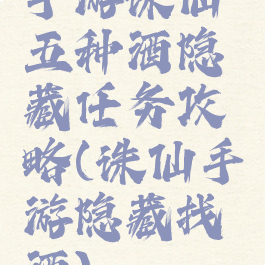 手游诛仙
五种酒隐
藏任务攻
略(诛仙手
游隐藏找
酒)